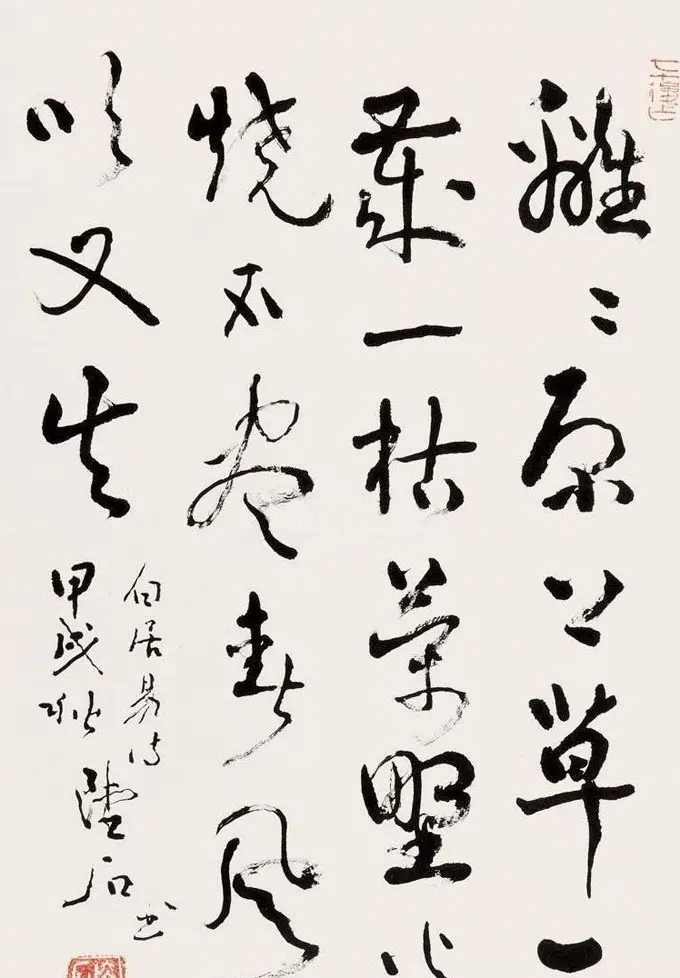 離〻原上草一
歲一枯榮野火
燒不盡春風
吹又生
白居易詩
甲戌秋 石書